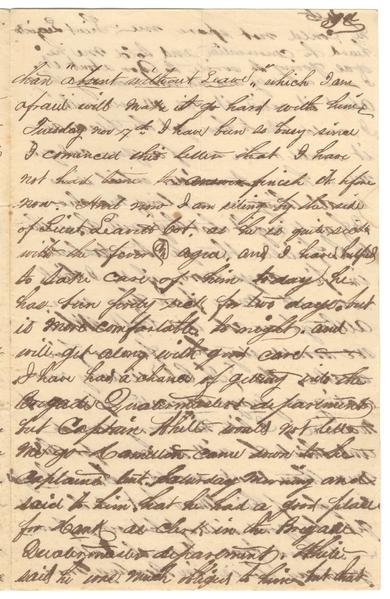 than "absent without Leave," which I am
afraid will make it go hard with him
Tuesday nov 7th I have been so busy since
I comenced this letter that I have
not had time to answer finish it before
now. And now I am siting by the side
of Lieut Leanids bed, as he is quite sick
with the fever & agua, and I have helped
to take care of him today he
has been prety sick for two days, but
is more comfortable to night, and
will get along with good care
I have had a chance of geting into the
Brigade Quatermasters deparement,
but Captain White would not let
me go Hamilton came down to the
Captains tent Saturday morning and
said to him, that he had a good place
for Hank as Clerk in the Brigade
Quatermaster deparement, White
said he was much obliged to him but that